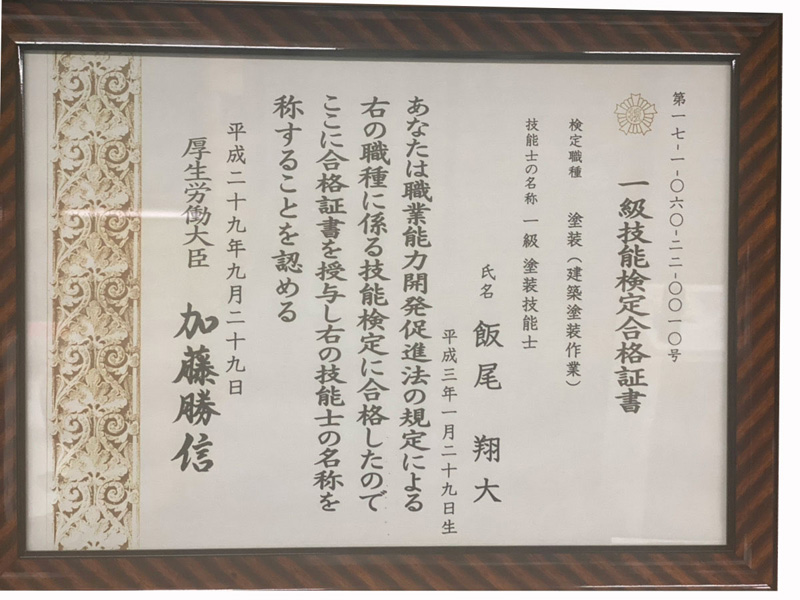 第一七-一-〇六〇-二二-〇〇一〇号
一級技能検定合格証書
検定職種 塗装(建築塗装作業)
技能士の名称 一級 塗装技能士
氏名 飯尾 翔大
平成三年一月二十九日生
あなたは職業能力開発促進法の規定による
右の職種に係る技能検定に合格したので
ここに合格証書を授与し右の技能士の名称を
称することを認める
平成二十九年九月二十九日
厚生労働大臣 加藤勝信